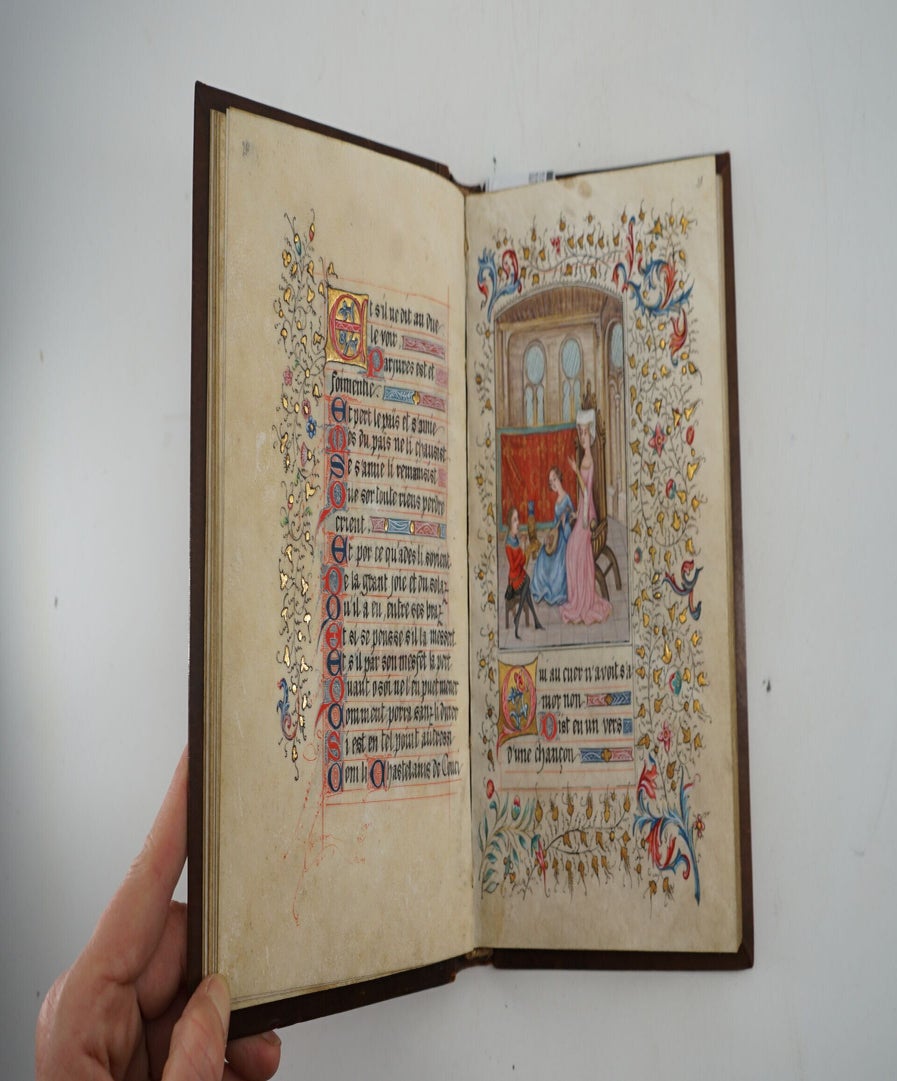 Et s'il ne dit au duc
le voir
Parjures est et
foimentie
Et pert le païs et s'amie
Mes du païs ne li chausist
Se s'amie li remainsist
Que sor toute riens perdre
crient
Et por ce qu'adès li sovient
De la grant joie et du solaz
Qu'il a eu entre ses braz
Et si se pensse s'il la messert
Et s'il par son mesfet la pert
Quant o soi ne l'en puet mener
Comment porra sanz li durer
Si est en tel point autressi
Com li Chastelains de Couci
Qui au cuer n'avoit s'a
mor non
Dist en un vers
d'une chançon